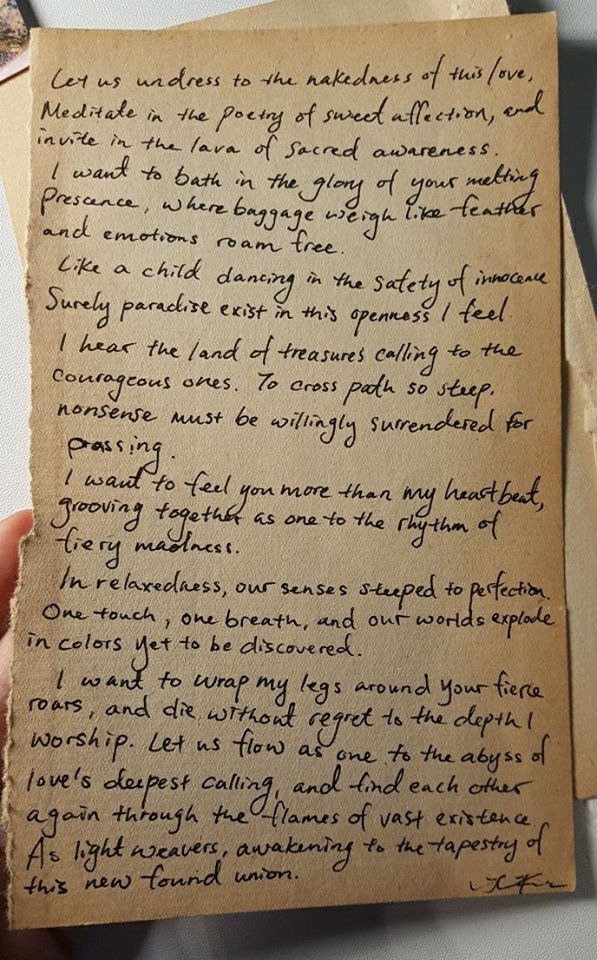 Let us undress to the nakedness of this love.
Meditate in the poetry of sweet affection, and
invite in the lava of sacred awareness.
I want to bath in the glory of your melting
prescence, where baggage weigh like feather
and emotions roam free.
Like a child dancing in the safety of innocence
Surely paradise exist in this openness I feel.
I hear the land of treasures calling to the
courageous ones. To cross path so steep.
nonsense must be willingly surrendered for
passing.
I want to feel you more than my heartbeat,
grooving together as one to the rhythm of
fiery madness.
In relaxedness, our senses steeped to perfection.
One touch, one breath, and our worlds explode
in colors yet to be discovered.
I want to wrap my legs around your fierce
roars, and die without regret to the depth I
worship. Let us flow as one to the abyss of
love's deepest calling, and find each other
again through the flames of vast existence
As light weavers, awakening to the tapestry of
this new found union.